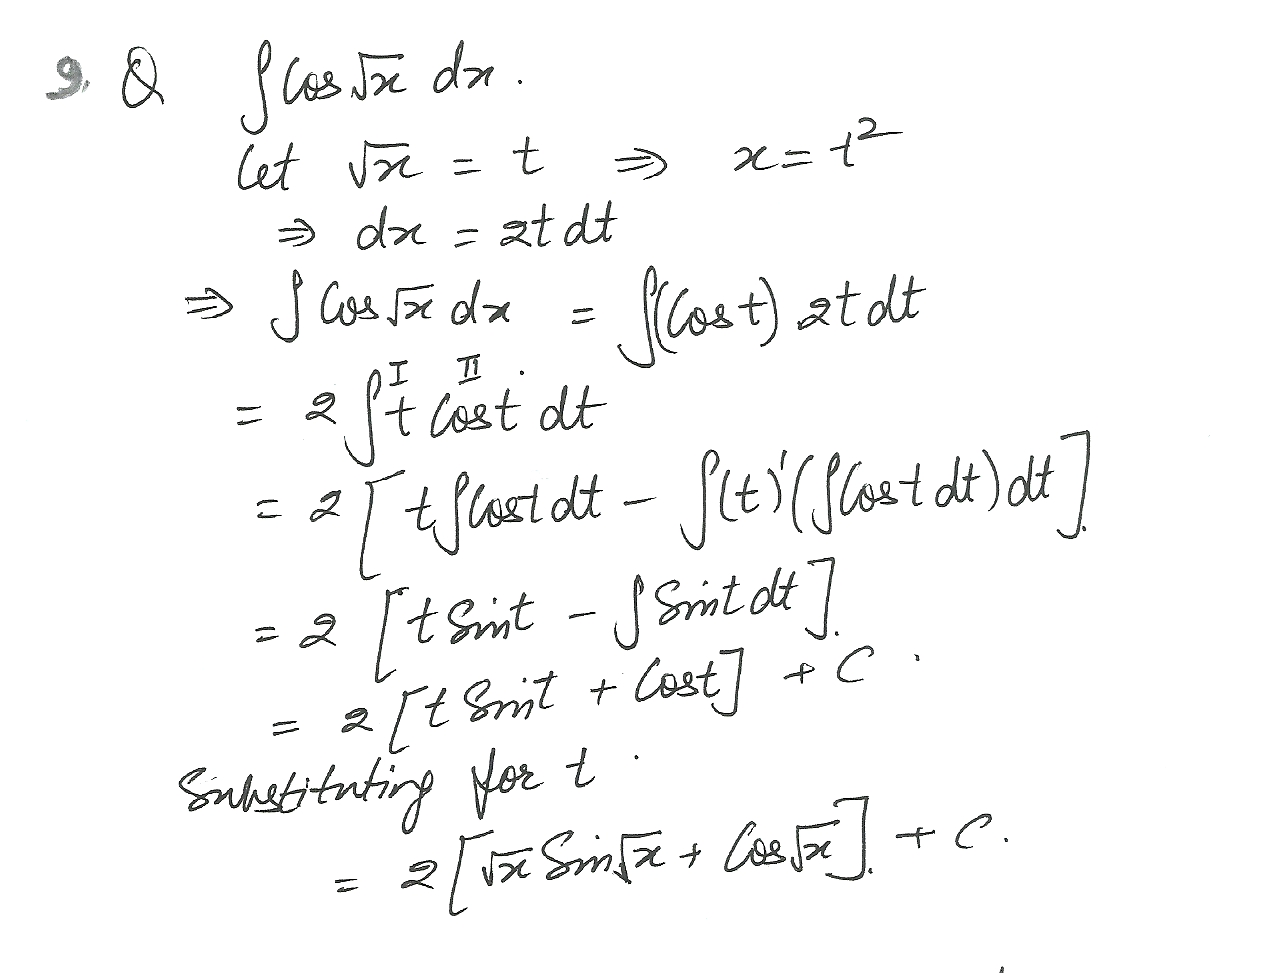 9. Q ∫ Cos √x dx.
Let √x = t ⇒ x = t²
⇒ dx = 2t dt
⇒ ∫ Cos √x dx = ∫(Cos t) 2t dt
I II .
= 2 ∫ t Cos t dt
= 2 [ t ∫ Cos t dt − ∫ (t)' ( ∫ Cos t dt ) dt ].
= 2 [ t Sin t − ∫ Sin t dt ].
= 2 [ t Sin t + Cos t ] + C .
Substituting for t .
= 2 [ √x Sin √x + Cos √x ]. + C.